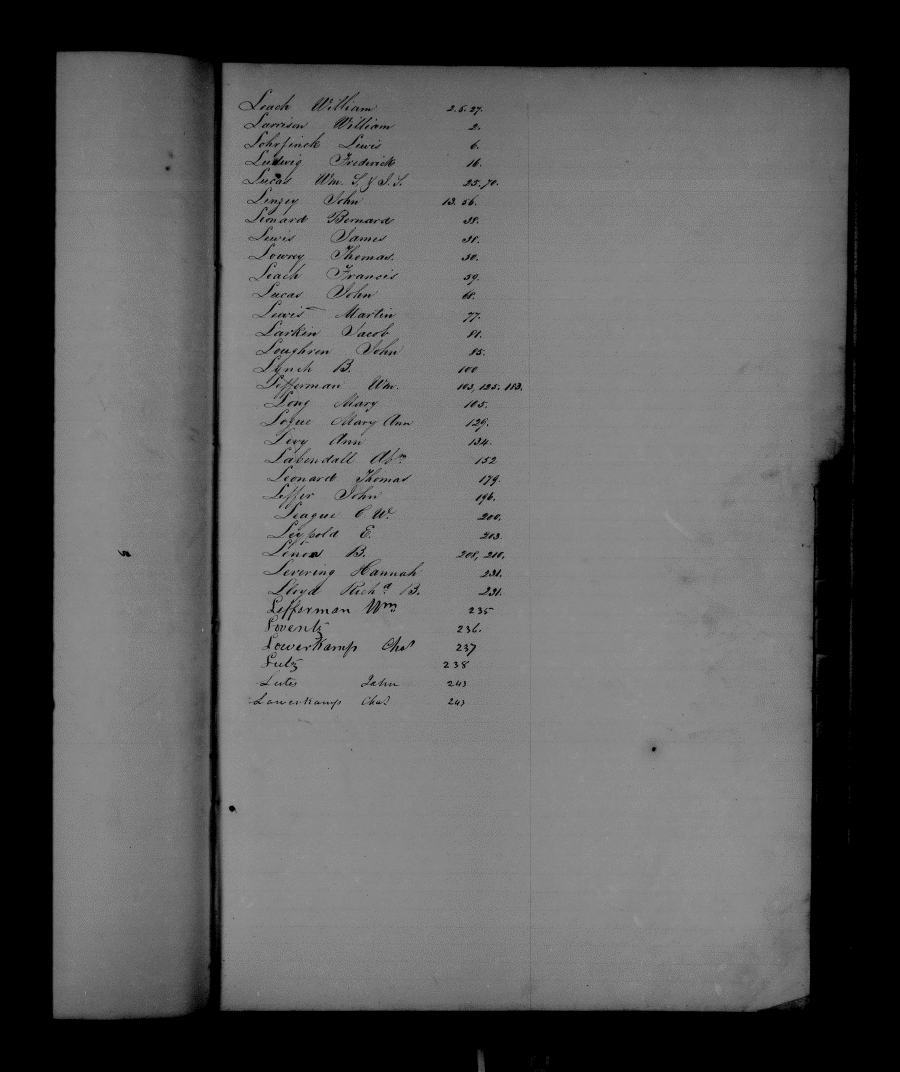 Leach William 2. 5. 27.
Larrison William 2.
Lohrfinck Lewis 6.
Ludwig Frederick 16.
Lucas Wm. S. & J. S. 25. 70.
Linzey John 13. 56.
Leonard Bernard 38.
Lewis James 38.
Lowrey Thomas. 50.
Leach Francis 59.
Lucas John 68.
Lewis Martin 77.
Larkin Jacob 81.
Loughren John 85.
Lynch B. 100
Lefferman Wm. 103, 125. 183.
Long Mary 105.
Logue Mary Ann 129.
Levy Ann 134.
Labendall Abm 152
Leonard Thomas 179.
Leffer John 196.
League C. W. 200.
Leypold E. 203.
Lenox B. 208, 210.
Levering Hannah 231.
Lloyd Richd B. 231.
Lefferman Wm 235
Loventz 236.
LowerKamp Chas 237
Lutz 238
Lutes John 243
Lowerkamp Chas 243